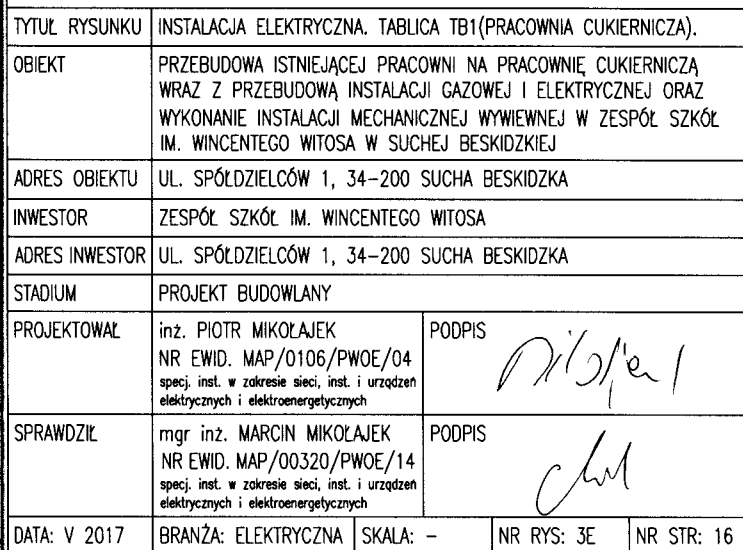 TYTUŁ RYSUNKU INSTALACJA ELEKTRYCZNA. TABLICA TB1(PRACOWNIA CUKIERNICZA).
OBIEKT PRZEBUDOWA ISTNIEJĄCEJ PRACOWNI NA PRACOWNIĘ CUKIERNICZĄ
WRAZ Z PRZEBUDOWĄ INSTALACJI GAZOWEJ I ELEKTRYCZNEJ ORAZ
WYKONANIE INSTALACJI MECHANICZNEJ WYWIEWNEJ W ZESPÓŁ SZKÓŁ
IM. WINCENTEGO WITOSA W SUCHEJ BESKIDZKIEJ
ADRES OBIEKTU UL. SPÓŁDZIELCÓW 1, 34-200 SUCHA BESKIDZKA
INWESTOR ZESPÓŁ SZKÓŁ IM. WINCENTEGO WITOSA
ADRES INWESTOR UL. SPÓŁDZIELCÓW 1, 34-200 SUCHA BESKIDZKA
STADIUM PROJEKT BUDOWLANY
PROJEKTOWAŁ inż. PIOTR MIKOŁAJEK PODPIS
NR EWID. MAP/0106/PWOE/04
specj. inst. w zakresie sieci, inst. i urządzeń
elektrycznych i elektroenergetycznych
SPRAWDZIŁ mgr inż. MARCIN MIKOŁAJEK PODPIS
NR EWID. MAP/00320/PWOE/14
specj. inst. w zakresie sieci, inst. i urządzeń
elektrycznych i elektroenergetycznych
DATA: V 2017 BRANŻA: ELEKTRYCZNA SKALA: - NR RYS: 3E NR STR: 16